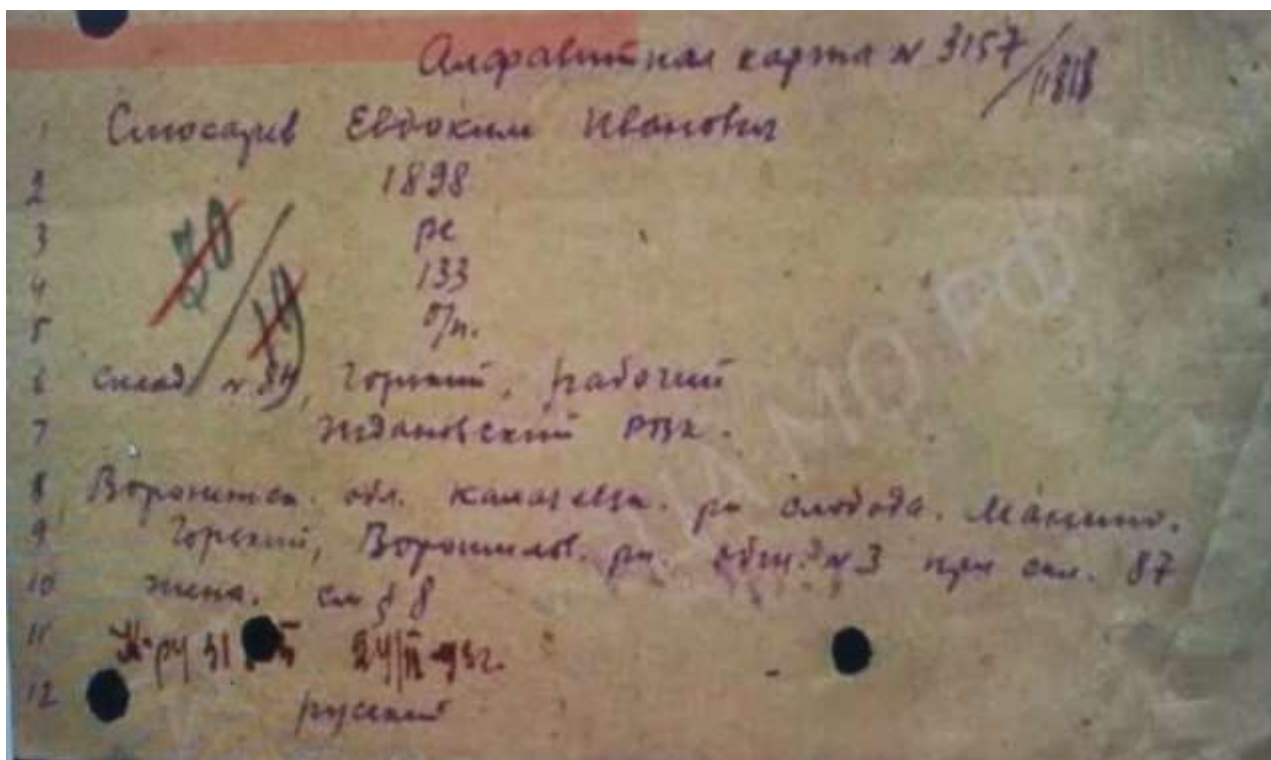 Алфавитная карта № 3157/11818
1 Слюсарев Евдоким Иванович
2 1898
3 рс
4 133
5 б/п.
30/19
6 Склад № 87, Горький, рабочий
7 Ждановский РВК.
8 Воронежск. обл. Калачевск. рн слобода.
9 Горький, Ворошилов. рн. общ. № 3 при скл. 87
10 жена. см § 8
11 24/II-43г.
12 русский
ЦАМО РФ